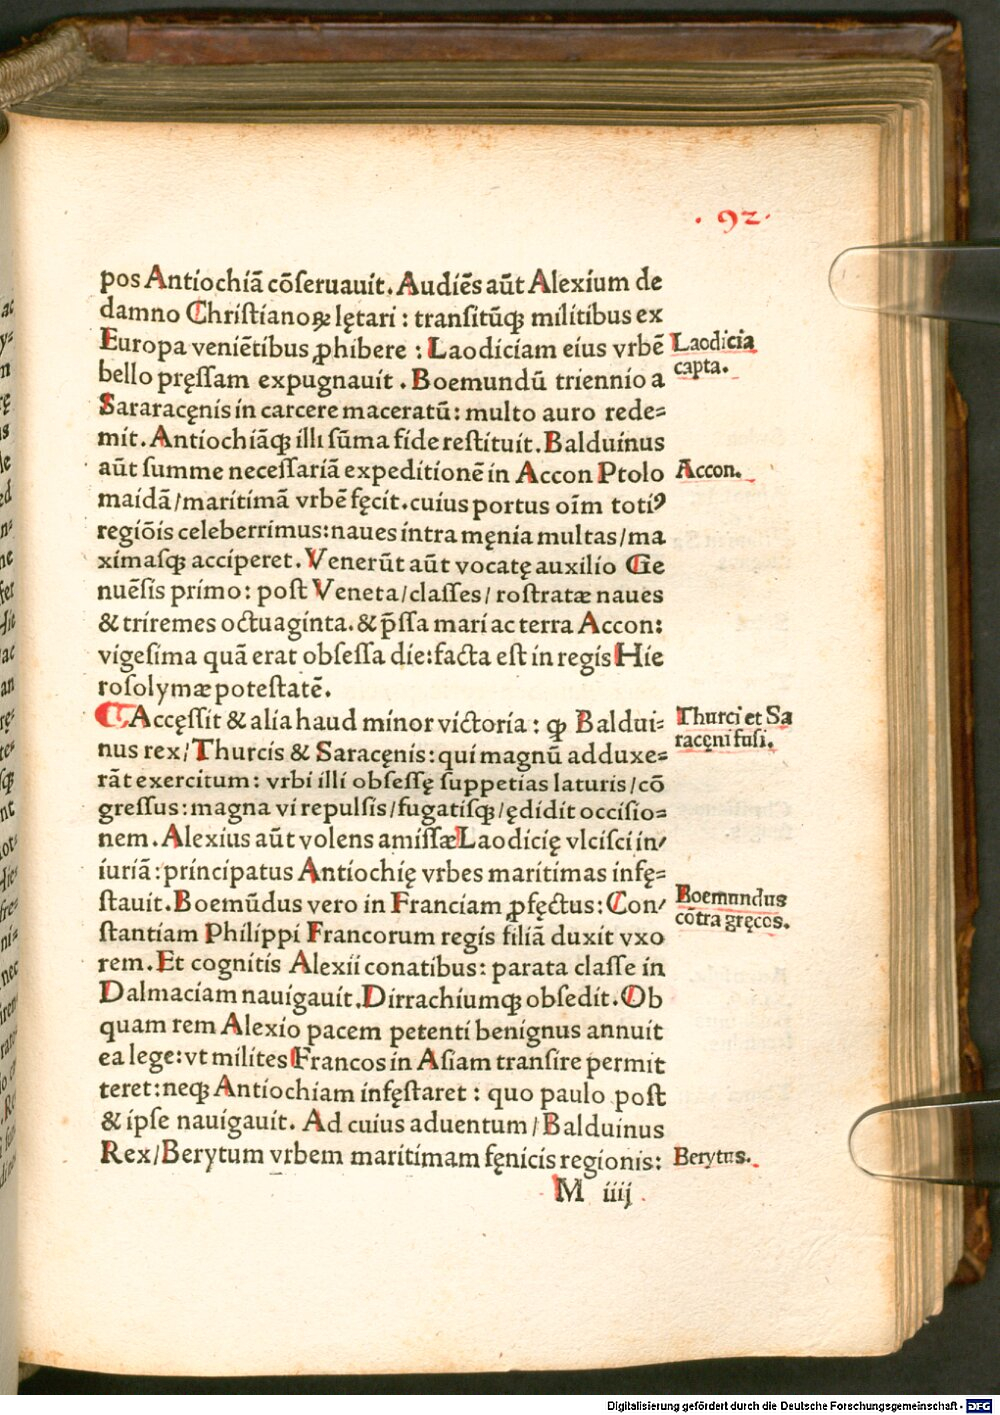 · 92 ·
pos Antiochiā cōſeruauit. Audiēs aūt Alexium de
damno Chriſtianoꝝ lętari : tranſitūqꝫ militibus ex
Europa veniētibus ꝓhibere : Laodiciam eius vrbē
Laodicia
capta.
bello pręſſam expugnauit . Boemundū triennio a
Sararacęnis in carcere maceratū: multo auro rede=
mit. Antiochiāqꝫ illi ſūma fide reſtituit. Balduinus
aūt ſumme neceſſariā expeditionē in Accon Ptolo
Accon.
maidā/maritimā vrbē fęcit. cuius portus oīm totiꝰ
regiōis celeberrimus: naues intra męnia multas/ma
ximaſqꝫ acciperet. Venerūt aūt vocatę auxilio Ge
nuēſis primo: poſt Veneta/claſſes/ roſtratæ naues
& triremes octuaginta. & p̄ſſa mari ac terra Accon:
vigeſima quā erat obſeſſa die: facta eſt in regis Hie
roſolymæ poteſtatē.
¶ Accęſſit & alia haud minor victoria : qꝫ Baldui=
Thurci et Sa
racęni fuſi.
nus rex/Thurcis & Saracęnis: qui magnū adduxe=
rāt exercitum: vrbi illi obſeſſę ſuppetias laturis/cō
greſſus: magna vi repulſis/fugatiſqꝫ/ędidit occiſio=
nem. Alexius aūt volens amiſſæ Laodicię vlciſci in/
iuriā: principatus Antiochię vrbes maritimas infę=
ſtauit. Boemūdus vero in Franciam ꝓfęctus: Con/
Boemundus
cōtra gręcos.
ſtantiam Philippi Francorum regis filiā duxit vxo
rem. Et cognitis Alexii conatibus: parata claſſe in
Dalmaciam nauigauit. Dirrachiumqꝫ obſedit. Ob
quam rem Alexio pacem petenti benignus annuit
ea lege: vt milites Francos in Aſiam tranſire permit
teret: neqꝫ Antiochiam infęſtaret : quo paulo poſt
& ipſe nauigauit. Ad cuius aduentum/Balduinus
Rex/Berytum vrbem maritimam fęnicis regionis:
Berytus.
M iiij
Digitalisierung gefördert durch die Deutsche Forschungsgemeinschaft - DFG